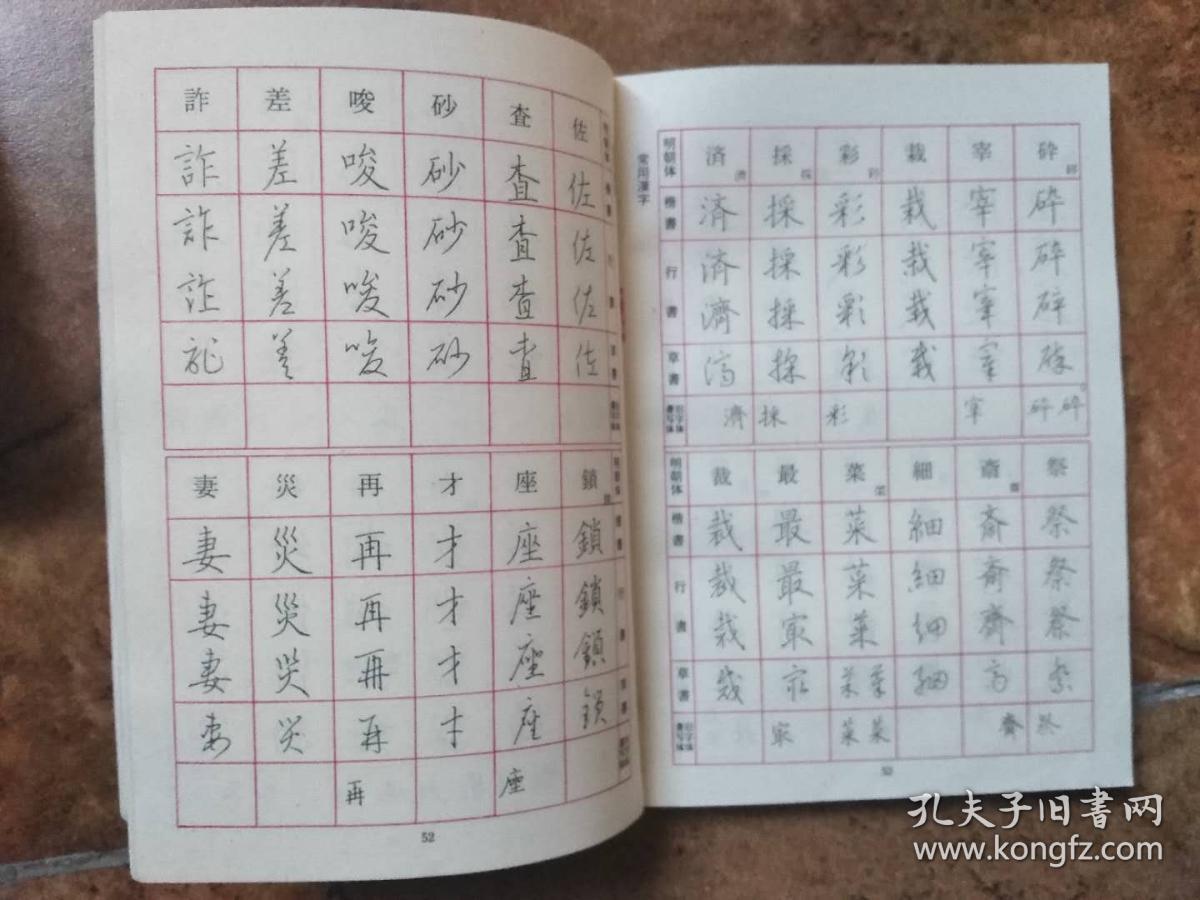 詐 差 唆 砂 査 佐
詐 差 唆 砂 査 佐
詐 差 唆 砂 査 佐
詐 差 唆 砂 査 佐
詐 差 唆 砂 査 佐
妻 災 再 才 座 鎖 明朝体
妻 災 再 才 座 鎖
妻 災 再 才 座 鎖
妻 災 再 才 座 鎖
妻 災 再 才 座 鎖
再 座
52
常用漢字
明朝体 済 濟 採 彩 栽 宰 砕 碎
楷書 済 採 彩 栽 宰 砕
行書 済 採 彩 栽 宰 砕
濟 採 彩 栽 宰 碎
草書 済 採 彩 栽 宰 砕
濟 採 彩 宰 砕 砕
明朝体 裁 最 菜 細 斎 齋 祭
楷書 裁 最 菜 細 斎 祭
行書 裁 最 菜 細 斎 祭
裁 最 菜 細 齋 祭
草書 裁 最 菜 菜 細 斎 祭
最 菜 菜 齋 祭
53
孔夫子旧书网
www.kongfz.com